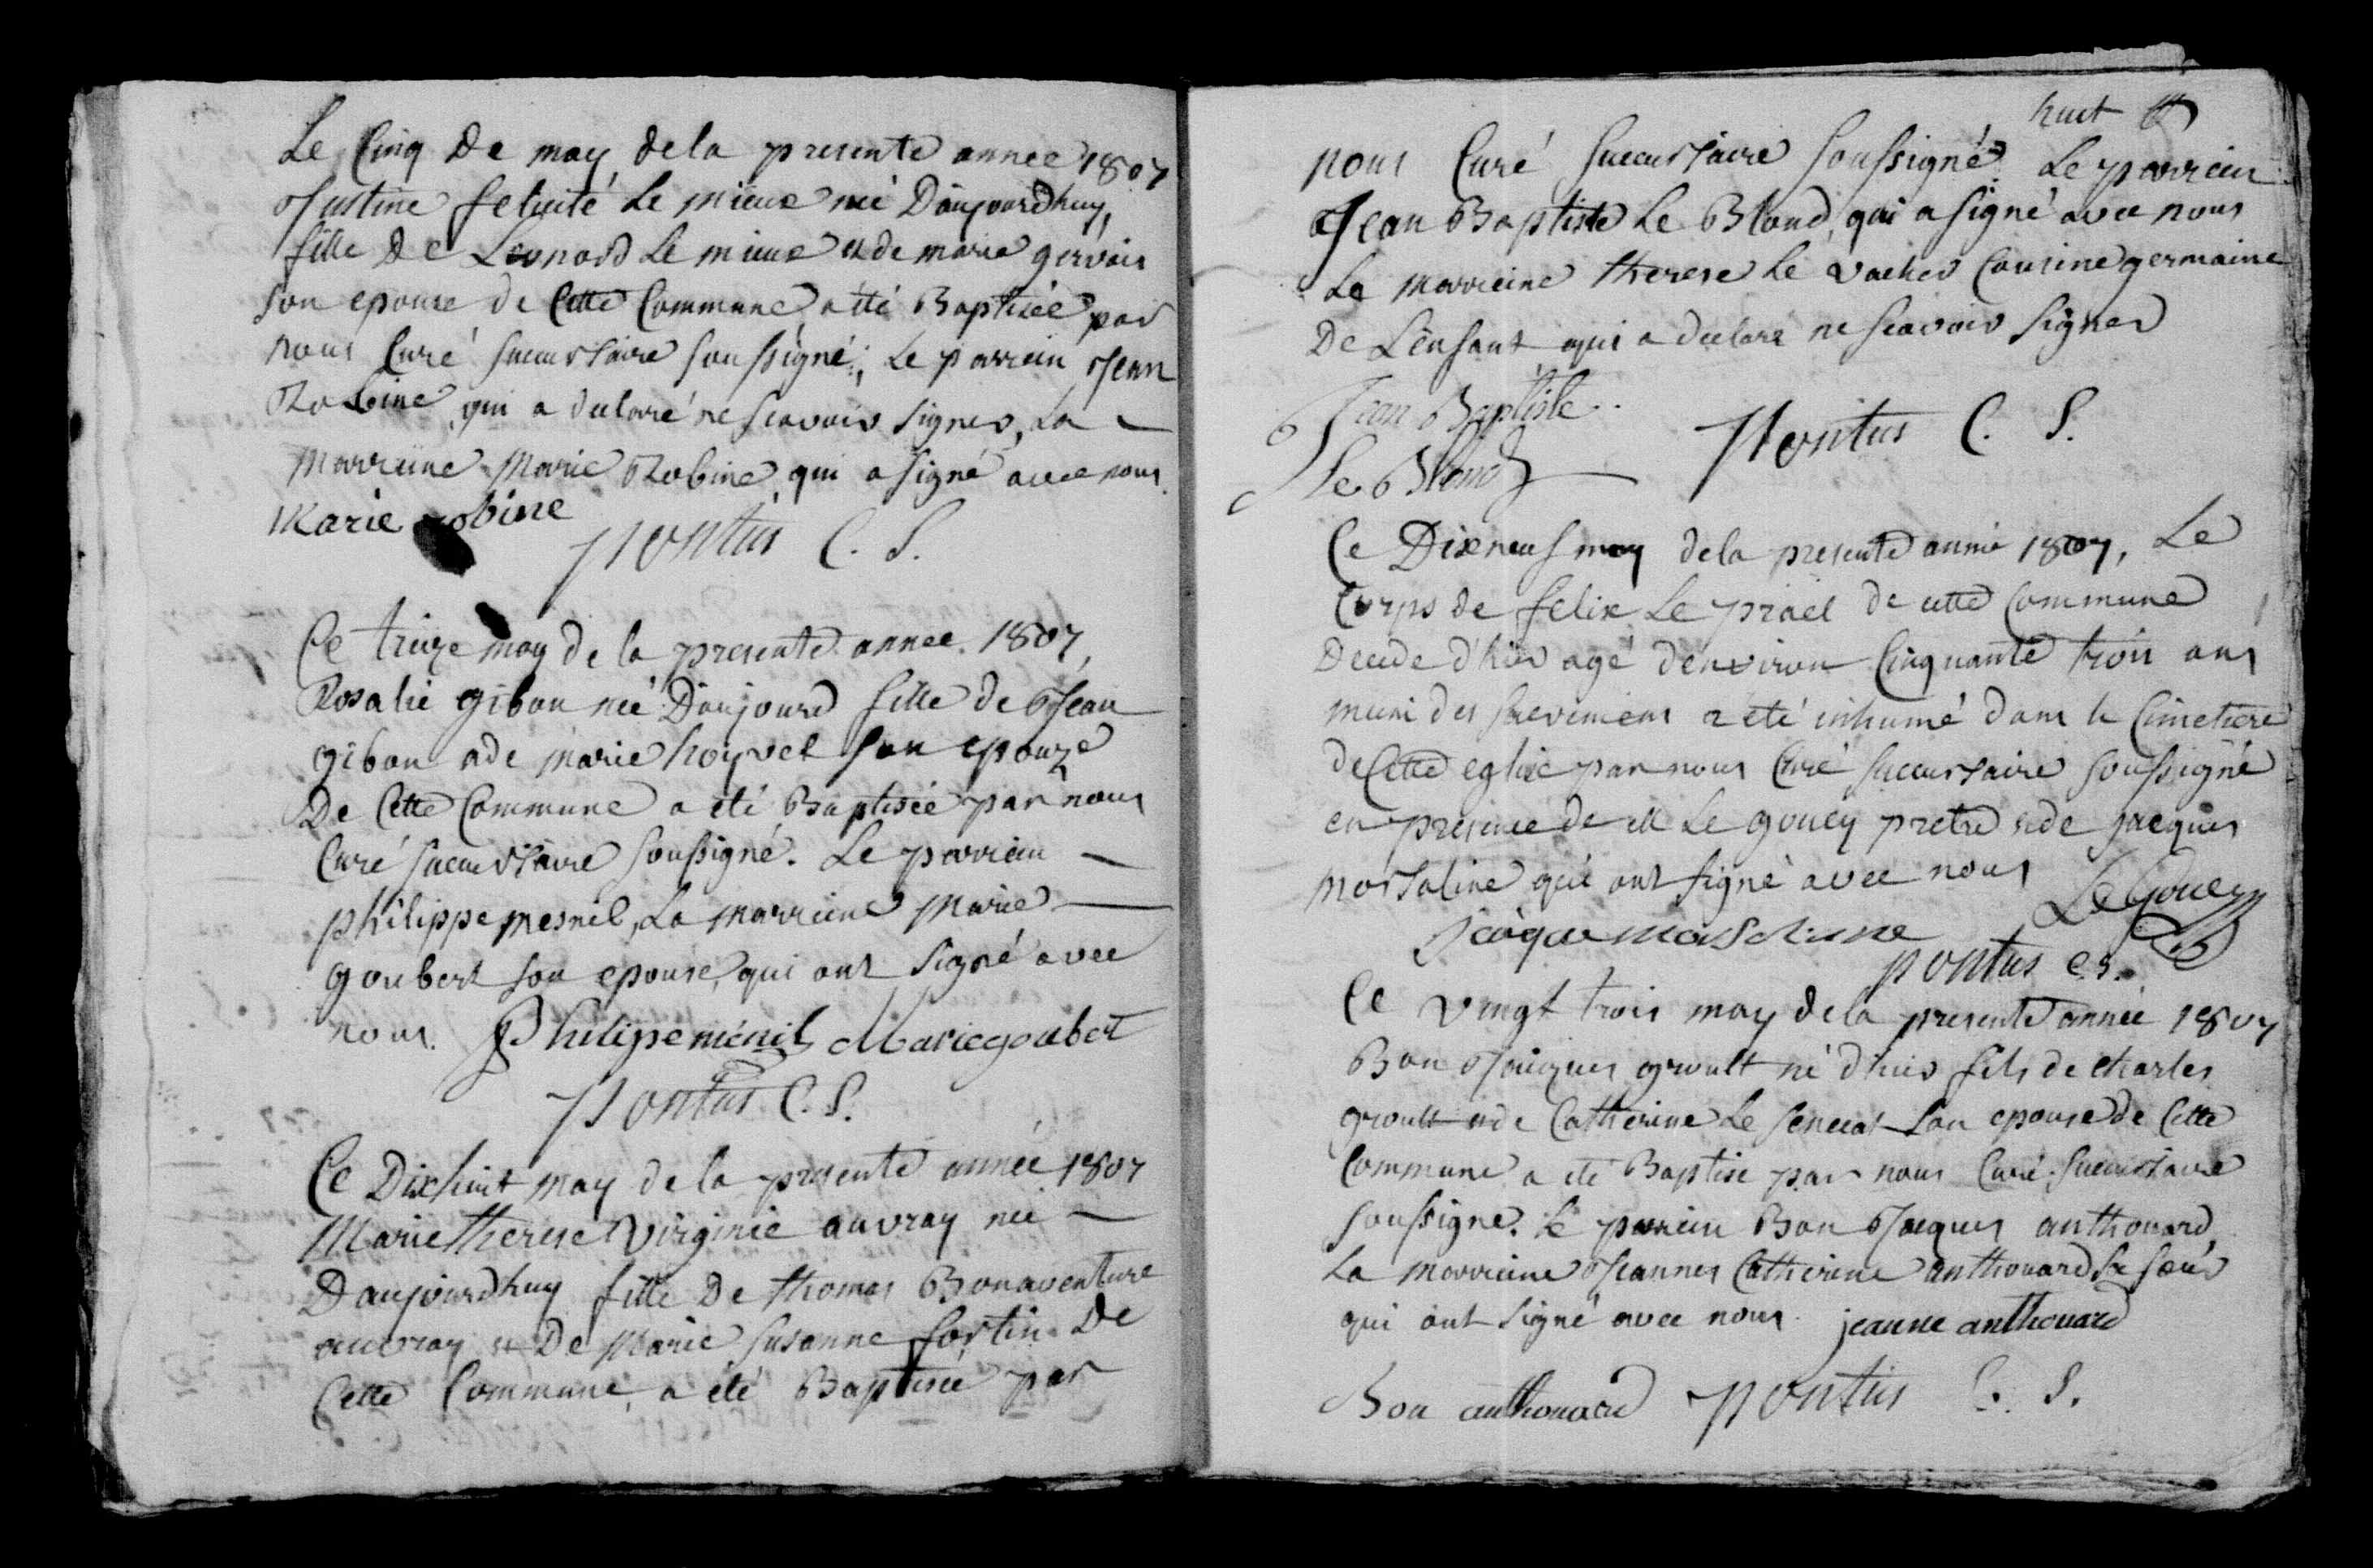 Le Cinq De may dela presente annee 1807
Justine felicité Le mieux neé Daujourdhuy,
fille De Leonard Le mieux et de marie gervais
son epouse de Cette Commune a été Baptisée par
nous Curé succursaire soussigné, Le parrein Jean
Robine qui a declaré ne scavoir signer, La
marreine Marie Robine qui a signé avec nous.
Marie robine
pontus C. S.
Ce treize may de la presente annee 1807,
Rosalie gibon neé Daujourd fille de Jean
gibon et de marie hoyvel son epouze
De Cette Commune a été Baptisée par nous
Curé succursaire soussigné. Le parrein
philippe mesnil, La marreine Marie
goubert son epouse, qui ont signé avec
nous. Philipe ménil Marie goubert
Pontus C. S.
Ce Dixhuit may de la presente année 1807
Marie therese Virginie auvray neé
Daujourdhuy fille De thomas Bonaventure
auvray et De Marie susanne fortin De
Cette Commune, a été Baptisée par
huit
nous Curé succursaire soussigné. Le parrein
Jean Baptiste Le Blond, qui a signé avec nous
La marreine therese le vacher Cousine germaine
De L'enfant qui a declaré ne scavoir signer
Jean Baptiste
Le Blond
Pontus C. S.
Ce Dixneuf may dela presente année 1807, Le
Corps de felix Le prael de cette Commune
Decede d'hier agé d'environ Cinquante trois ans
muni des sacremens a été inhumé dans le Cimetiere
de Cette eglise par nous Curé succursaire soussigné
en presence de M Le gouey pretre et de jacques
morsaline qui ont signé avec nous
LeGouey
Jacque
pontus C. S.
Ce vingt trois may dela presente année 1807
Bon Jacques groult né d'hier fils de Charles
groult et de Catherine Le senecal son epouse de Cette
Commune a été Baptisé par nous Curé succursaire
soussigné. Le parrein Bon Jacques anthouard,
La marreine Jeanne Catherine anthouard sa sœur
qui ont signé avec nous. jeanne anthouard
Bon anthouard pontus C. S.